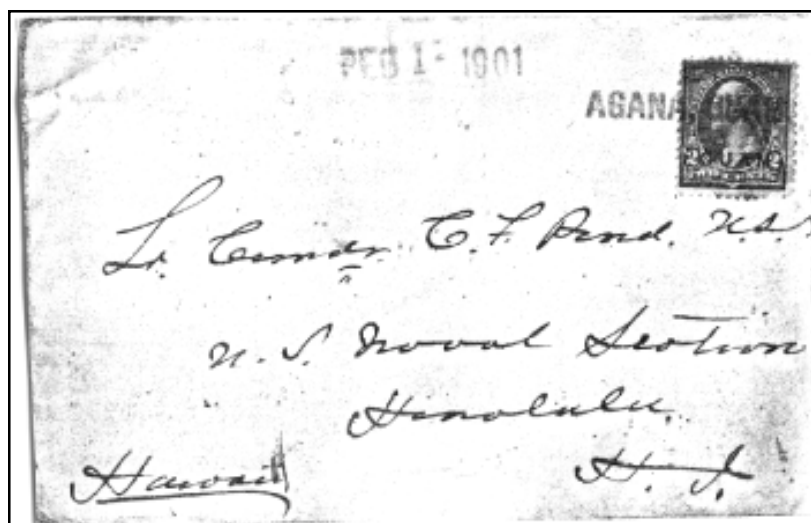 FEB 1 - 1901
AGANA, GUAM
GUAM
Lt. Comdr. C. F. Pond. U.S.
U. S. Naval Station
Honolulu.
H. I.
Hawaii